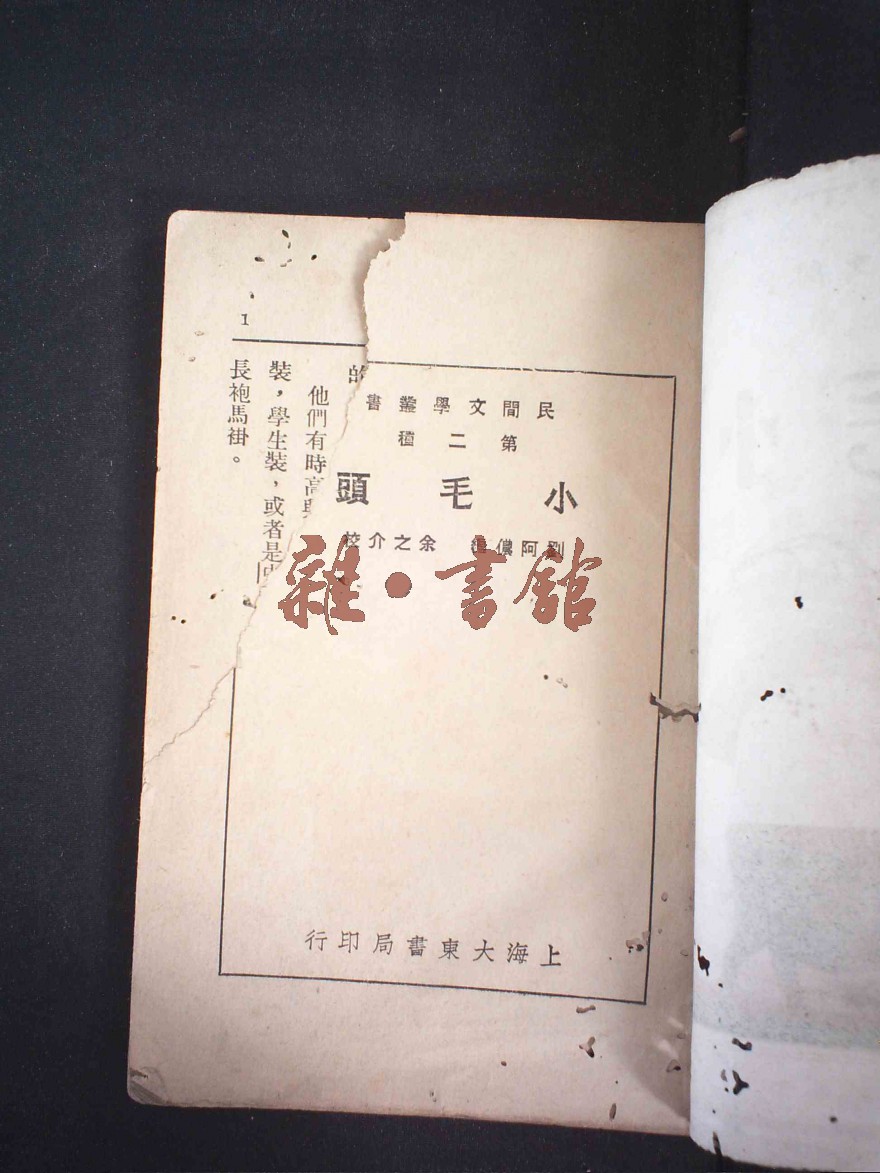 民間文學叢書
第二種
小毛頭
劉阿儂 余之介校
上海大東書局印行
雜·書館
1
的
他們有時高
裝，學生裝，或者是
長袍馬褂。